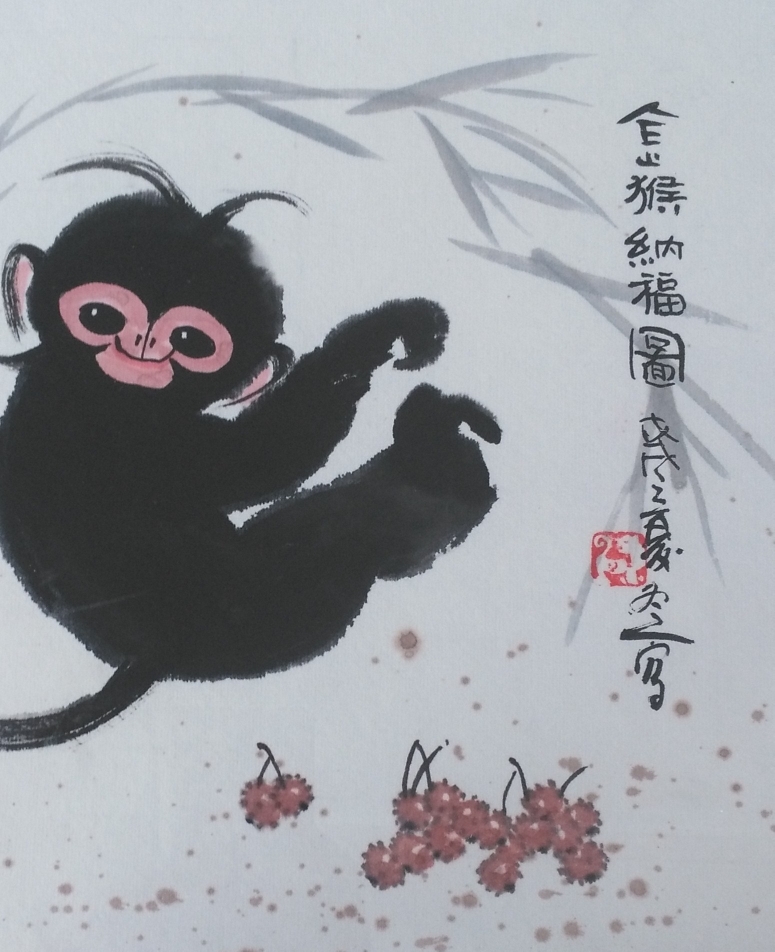 金猴納福圖 歲之夏之寫